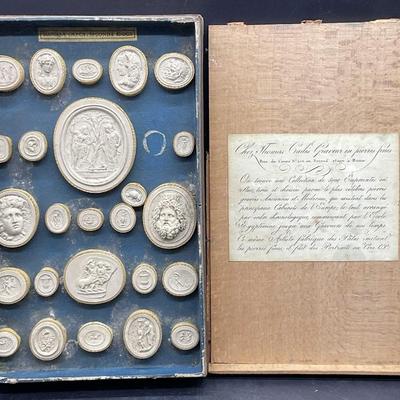 Chez Thomas Cades Graveur en pierres fines
Rue du Corso N° 456 au Second étage à Rome
On trouve une Collection de 5000 Empreintes en
par les plus célèbres
graveurs Anciens et Modernes, qui existent dans les
principaux Cabinets de l'Europe, le tout arrangé
par ordre chronologique commençant par l'Ecole
Egyptienne jusqu'aux Graveurs de nos temps.
Ce même Artiste fabrique des Pâtes imitant
les pierres fines, il fait des Portraits en Cire &&